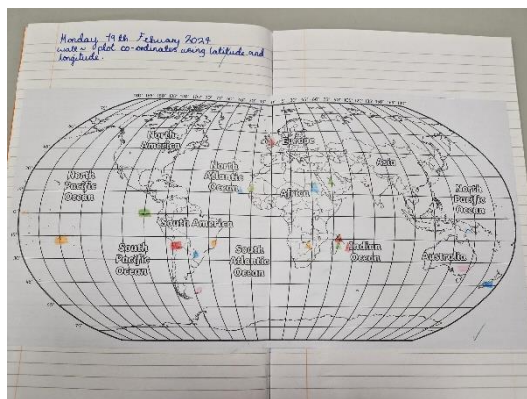 Monday 19th February 2024
walt ~ plot co-ordinates using latitude and
longitude.
North
America
Europe
Asia
North
Pacific
Ocean
North
Atlantic
Ocean
Africa
North
Pacific
Ocean
South America
South
Pacific
Ocean
South
Atlantic
Ocean
Indian
Ocean
Australia